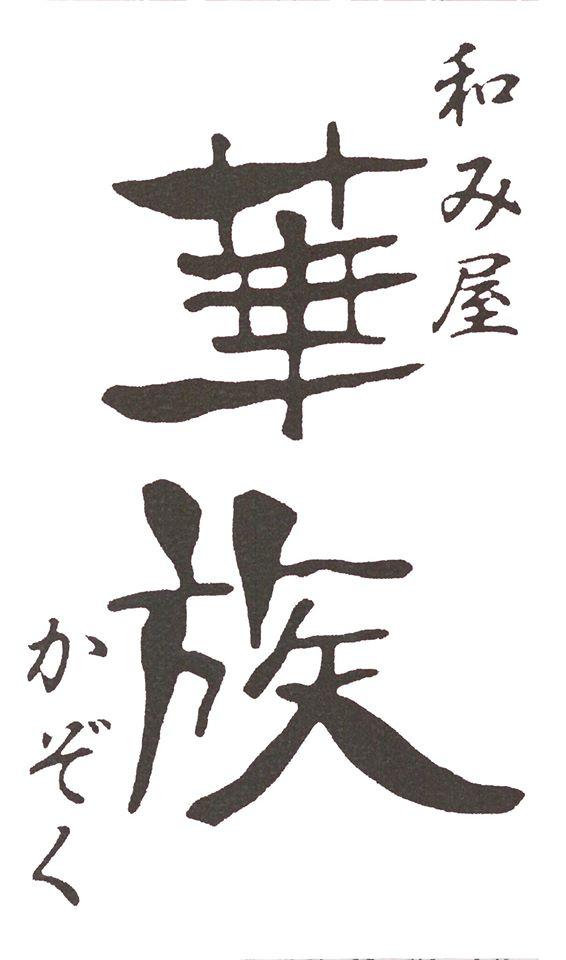 和み屋
華族
かぞく